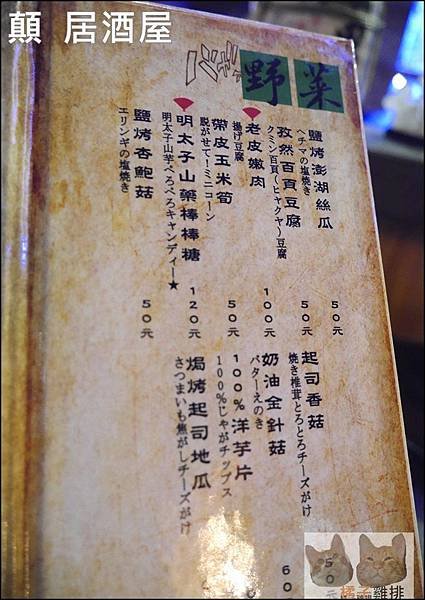 顛 居酒屋
野菜
鹽烤澎湖絲瓜
ヘチマの塩焼き
50元
孜然百頁豆腐
クミン百頁(ヒャクヤ)豆腐
50元
老皮嫩肉
揚げ豆腐
100元
帶皮玉米筍
脱がせて!ミニコーン
50元
明太子山藥棒棒糖
明太子山芋ぺろぺろキャンディー★
120元
鹽烤杏鮑菇
エリンギの塩焼き
50元
起司香菇
焼き椎茸とろとろチーズがけ
50元
奶油金針菇
バターえのき
60
100%洋芋片
100%じゃがチップス
焗烤起司地瓜
さつまいも焦がしチーズがけ
橘子雞排